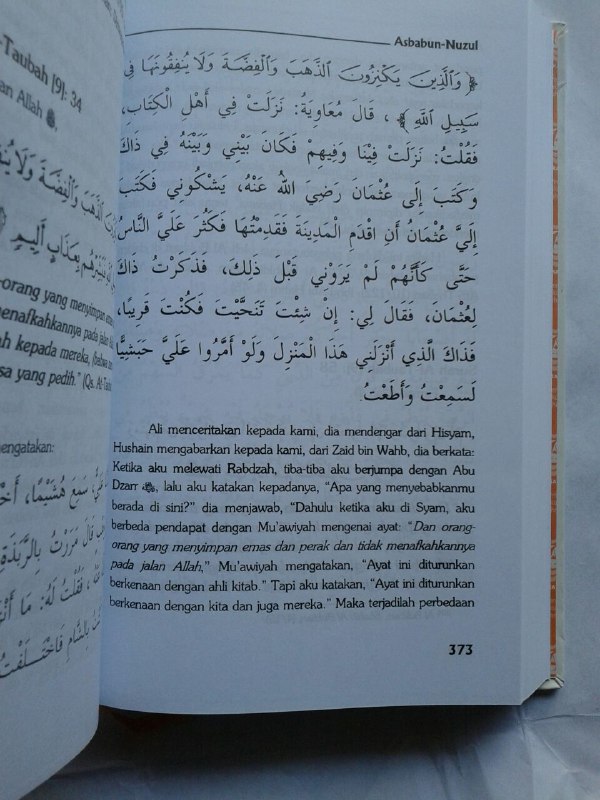 -Taubah [9]: 34
an Allah ﷻ,
orang yang menyimpan emas
menafkahkannya pada jalan
ah kepada mereka, (bahwa
sa yang pedih." (Qs. At
ngatakan:
Asbabun-Nuzul
﴿ وَٱلَّذِينَ يَكْنِزُونَ ٱلذَّهَبَ وَٱلْفِضَّةَ وَلَا يُنفِقُونَهَا فِى
سَبِيلِ ٱللَّهِ ﴾ ، قَالَ مُعَاوِيَةُ: نَزَلَتْ فِي أَهْلِ الْكِتَابِ،
فَقُلْتُ: نَزَلَتْ فِينَا وَفِيهِمْ فَكَانَ بَيْنِي وَبَيْنَهُ فِي ذَاكَ
وَكَتَبَ إِلَى عُثْمَانَ رَضِيَ اللهُ عَنْهُ، يَشْكُونِي فَكَتَبَ
إِلَيَّ عُثْمَانُ أَنِ اقْدَمِ الْمَدِينَةَ فَقَدِمْتُهَا فَكَثُرَ عَلَيَّ النَّاسُ
حَتَّى كَأَنَّهُمْ لَمْ يَرَوْنِي قَبْلَ ذَلِكَ، فَذَكَرْتُ ذَاكَ
لِعُثْمَانَ، فَقَالَ لِي: إِنْ شِئْتَ تَنَحَّيْتَ فَكُنْتَ قَرِيبًا،
فَذَاكَ الَّذِي أَنْزَلَنِي هَذَا الْمَنْزِلَ وَلَوْ أَمَّرُوا عَلَيَّ حَبَشِيًّا
لَسَمِعْتُ وَأَطَعْتُ.
Ali menceritakan kepada kami, dia mendengar dari Hisyam,
Hushain mengabarkan kepada kami, dari Zaid bin Wahb, dia berkata:
Ketika aku melewati Rabdzah, tiba-tiba aku berjumpa dengan Abu
Dzarr ؓ, lalu aku katakan kepadanya, “Apa yang menyebabkanmu
berada di sini?” dia menjawab, “Dahulu ketika aku di Syam, aku
berbeda pendapat dengan Mu'awiyah mengenai ayat: “Dan orang-
orang yang menyimpan emas dan perak dan tidak menafkahkannya
pada jalan Allah,” Mu'awiyah mengatakan, “Ayat ini diturunkan
berkenaan dengan ahli kitab.” Tapi aku katakan, “Ayat ini diturunkan
berkenaan dengan kita dan juga mereka.” Maka terjadilah perbedaan
373